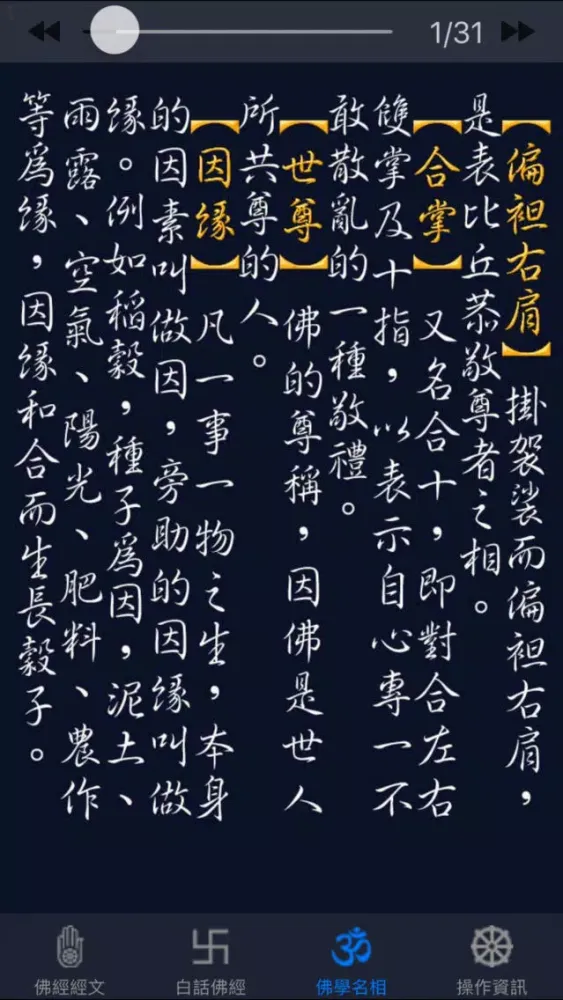 1/31
【偏袒右肩】 掛袈裟而偏袒右肩，
是表比丘恭敬尊者之相。
【合掌】 又名合十，即對合左右
雙掌及十指，以表示自心專一不
敢散亂的一種敬禮。
【世尊】 佛的尊稱，因佛是世人
所共尊的人。
【因緣】 凡一事一物之生，本身
的因素叫做因，旁助的因緣叫做
緣。例如稻穀，種子為因，泥土、
雨露、空氣、陽光、肥料、農作
等為緣，因緣和合而生長穀子。
佛經經文
白話佛經
佛學名相
操作資訊